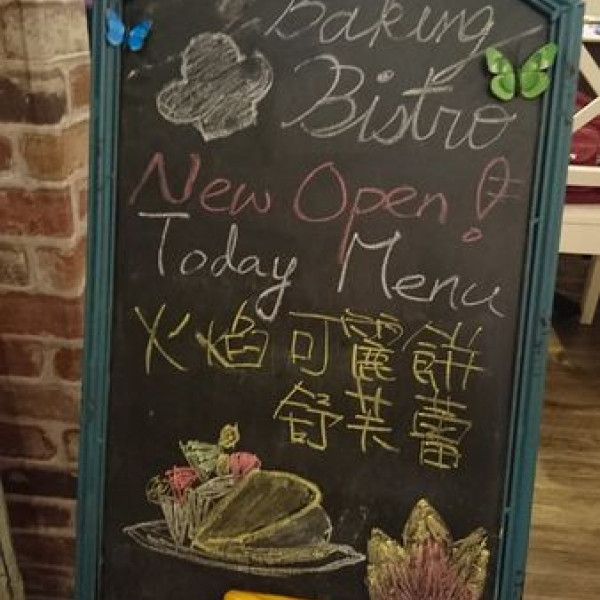 Baking
Bistro
New Open!
Today Menu
火焰可麗餅
舒芙蕾